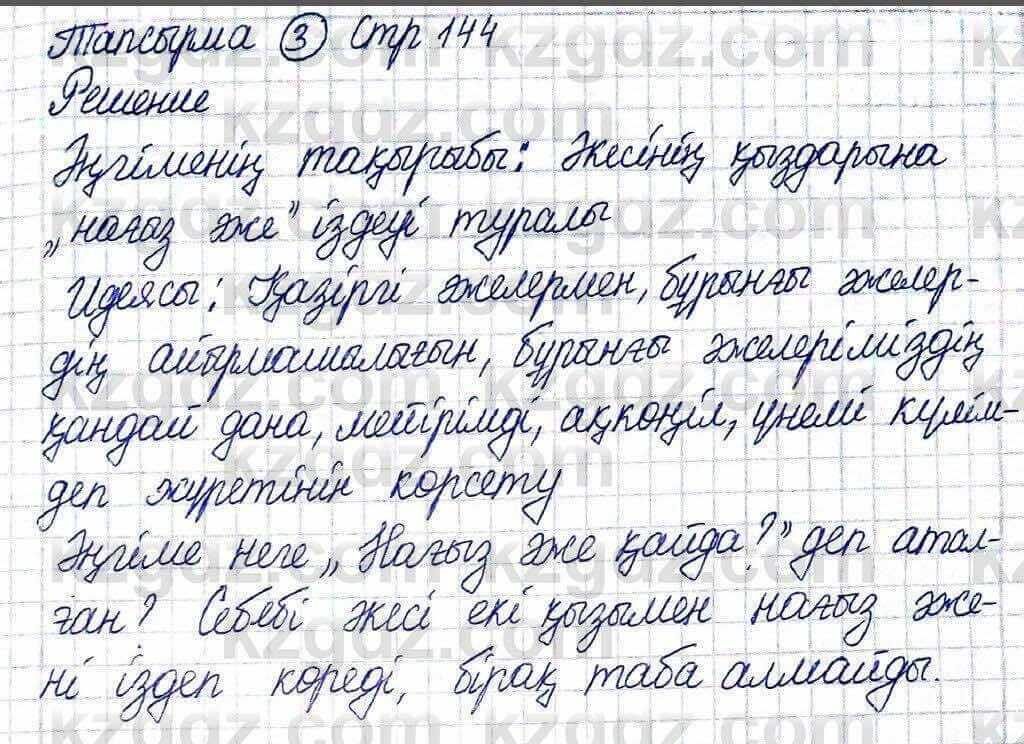 Тапсырма ③ Стр 144
Решение
Әңгіменің тақырыбы: Әкесінің қыздарына
„нағыз әже" іздеуі туралы
Идеясы: Қазіргі әжелермен, бұрынғы әжелер-
дің айырмашылығын, бұрынғы әжелеріміздің
қандай дана, мейірімді, ақкөңіл, үнемі күлім-
деп жүретінін көрсету
Әңгіме неге „Нағыз әже қайда?" деп атал-
ған? Себебі әкесі екі қызымен нағыз әже-
ні іздеп көреді, бірақ таба алмайды.